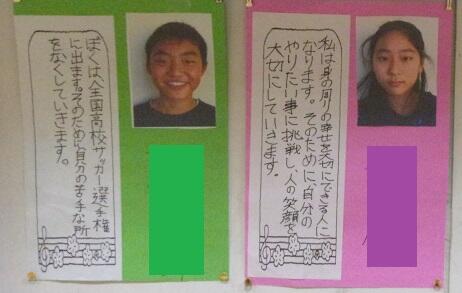 ぼくは全国高校サッカー選手権
に出ます。そのために自分の苦手な所
をなくしていきます。
私は身の周りの幸せを大切にできる人に
なります。そのために、自分の
やりたい事に挑戦し人の笑顔を
大切にしていきます。